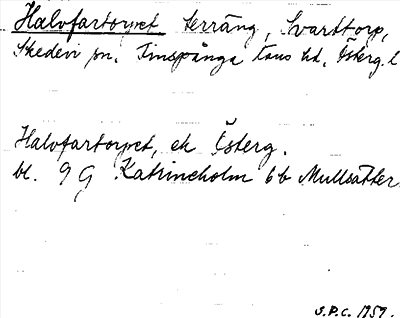 Halvfartorpet terräng, Svarttorp,
Skedevi sn. Finspånga läns hd, Österg. l
Halvfartorpet, ek Österg.
bl. 9 G Katrineholm 6b Mullsätter
S.P.C. 1959.